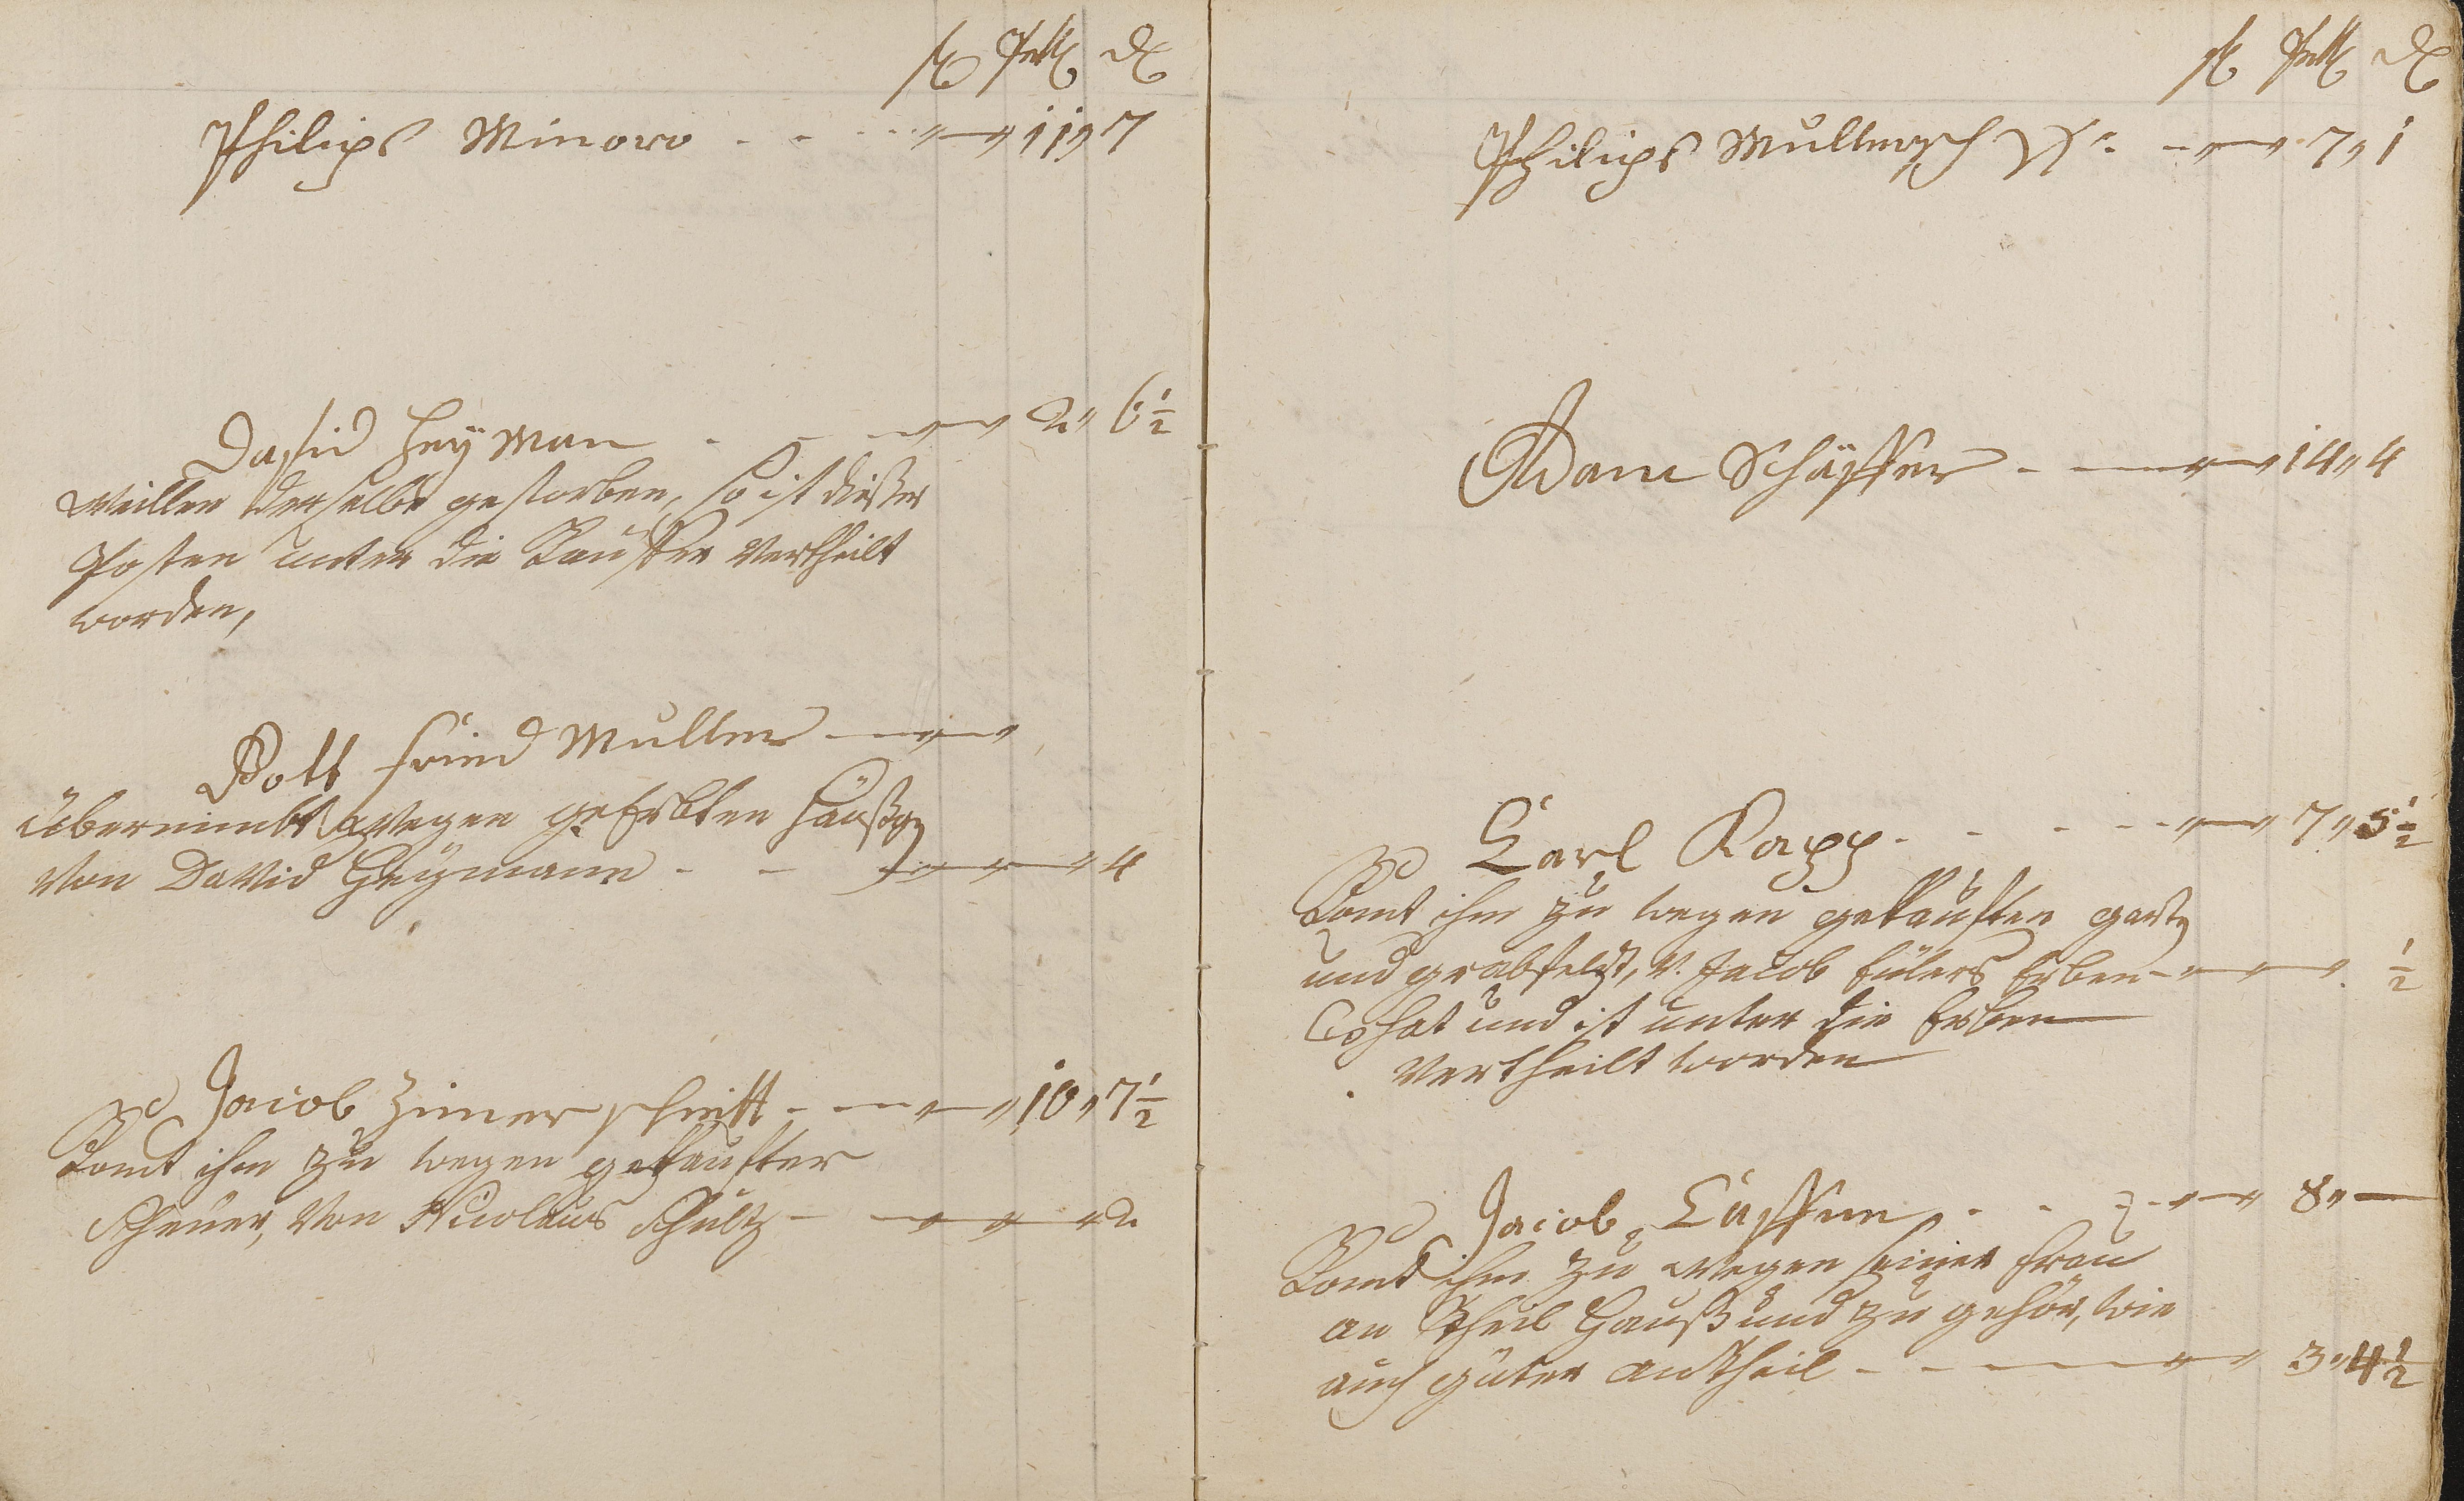 fl btz d
Philips Minoro - - - - „ — „ 11 „ 7
David Heÿman - - „ — „ 2 „ 6 1/2
Weillen derselbe gestorben, so ist dießer
Posten unter die Käuffer Vertheilt
worden,
Gottfried Muller — „ — „
übernimbt wegen geErbten Häußg
Von David Heÿmann - - „ — „ — „ 4
Jacob Zimerschritt - — „ — „ 10 „ 7 1/2
Komt ihm zu wegen gekaufter
Scheuer, Von Nicolaus Schultz - — „ — „ — „ 2
fl btz d
Philips Mullers - „ — „ 7 „ 1
Adam Schäffer - — „ — „ 14 „ 4
Carl Rapp - - - - - „ — „ 7 „ 5 1/2
Komt ihm zu wegen gekauften gart
und grabfeldt, v. Jacob Eülers Erben - „ — „ — „ 1/2
hat und ist unter die Erben
Vertheilt worden
Jacob Läffer - - - „ — „ 8 „ —
Komt ihm zu wegen seiner frau
an Theil Hauß und zu gehör, wie
auch güter antheil - - — „ — „ 3 „ 4 1/2